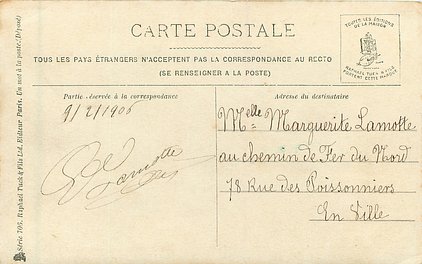 CARTE POSTALE
TOUS LES PAYS ÉTRANGERS N'ACCEPTENT PAS LA CORRESPONDANCE AU RECTO
(SE RENSEIGNER A LA POSTE)
TOUTES LES ÉDITIONS
DE LA MAISON
RAPHAEL TUCK & FILS
PORTENT CETTE MARQUE
Partie réservée à la correspondance
9/2/1906
Lamotte
Adresse du destinataire
Melle Marguerite Lamotte
au chemin de Fer du Nord
78 Rue des Poissonniers
En Ville
Série 706. Raphael Tuck & Fils Ltd. Editeur Paris. Un mot à la poste. (Déposé)